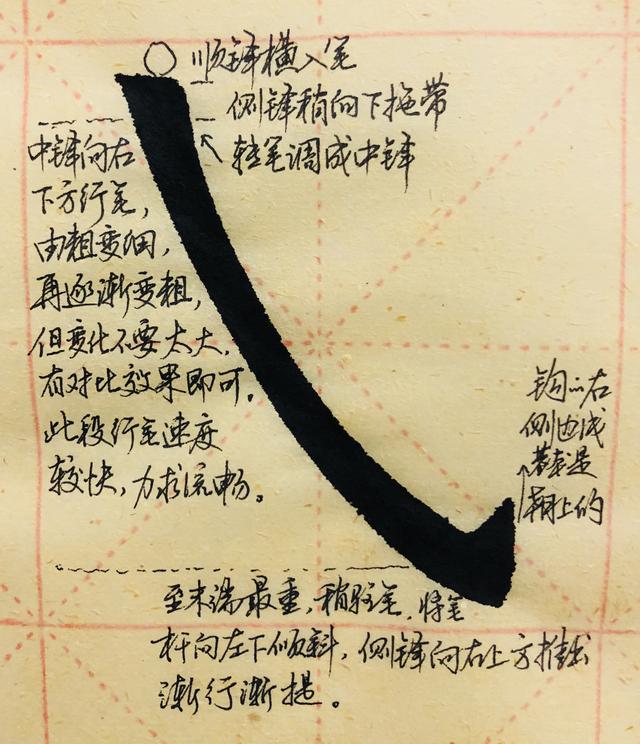 顺锋横入笔
侧锋稍向下拖带
转笔调成中锋
中锋向右
下方行笔，
由粗变细，
再逐渐变粗，
但变化不要太大，
有对比效果即可。
此段行笔速度
较快，力求流畅。
钩的右
侧边线
着势是
朝上的
至末端最重，稍驻笔，将笔
杆向左下倾斜，侧锋向右上方推出
渐行渐提。